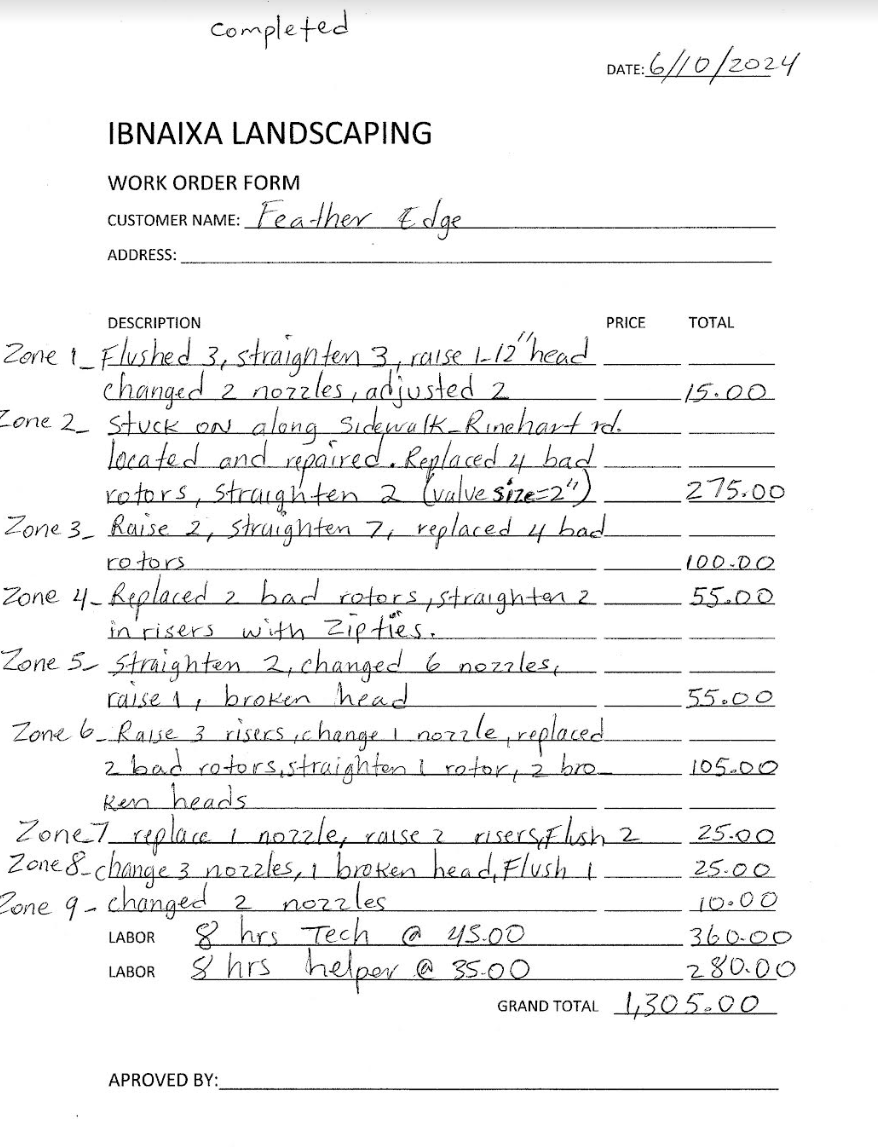 completed
DATE: 6/10/2024
IBNAIXA LANDSCAPING
WORK ORDER FORM
CUSTOMER NAME: Feather Edge
ADDRESS:
DESCRIPTION PRICE TOTAL
Zone 1_ Flushed 3, straighten 3, raise 1-12" head
changed 2 nozzles, adjusted 2 15.00
Zone 2_ Stuck on along Sidewalk_Rinehart rd.
located and repaired. Replaced 4 bad
rotors, straighten 2 (valve size=2") 275.00
Zone 3_ Raise 2, Straighten 7, replaced 4 bad
rotors 100.00
Zone 4_ Replaced 2 bad rotors, straighten 2 55.00
in risers with Zip ties.
Zone 5_ Straighten 2, changed 6 nozzles,
raise 1, broken head 55.00
Zone 6_ Raise 3 risers, change 1 nozzle, replaced
2 bad rotors, straighten 1 rotor, 2 bro_ 105.00
ken heads
Zone 7_ replace 1 nozzle, raise 2 risers, Flush 2 25.00
Zone 8_ change 3 nozzles, 1 broken head, Flush 1 25.00
Zone 9_ changed 2 nozzles 10.00
LABOR 8 hrs Tech @ 45.00 360.00
LABOR 8 hrs helper @ 35.00 280.00
GRAND TOTAL 1,305.00
APROVED BY: